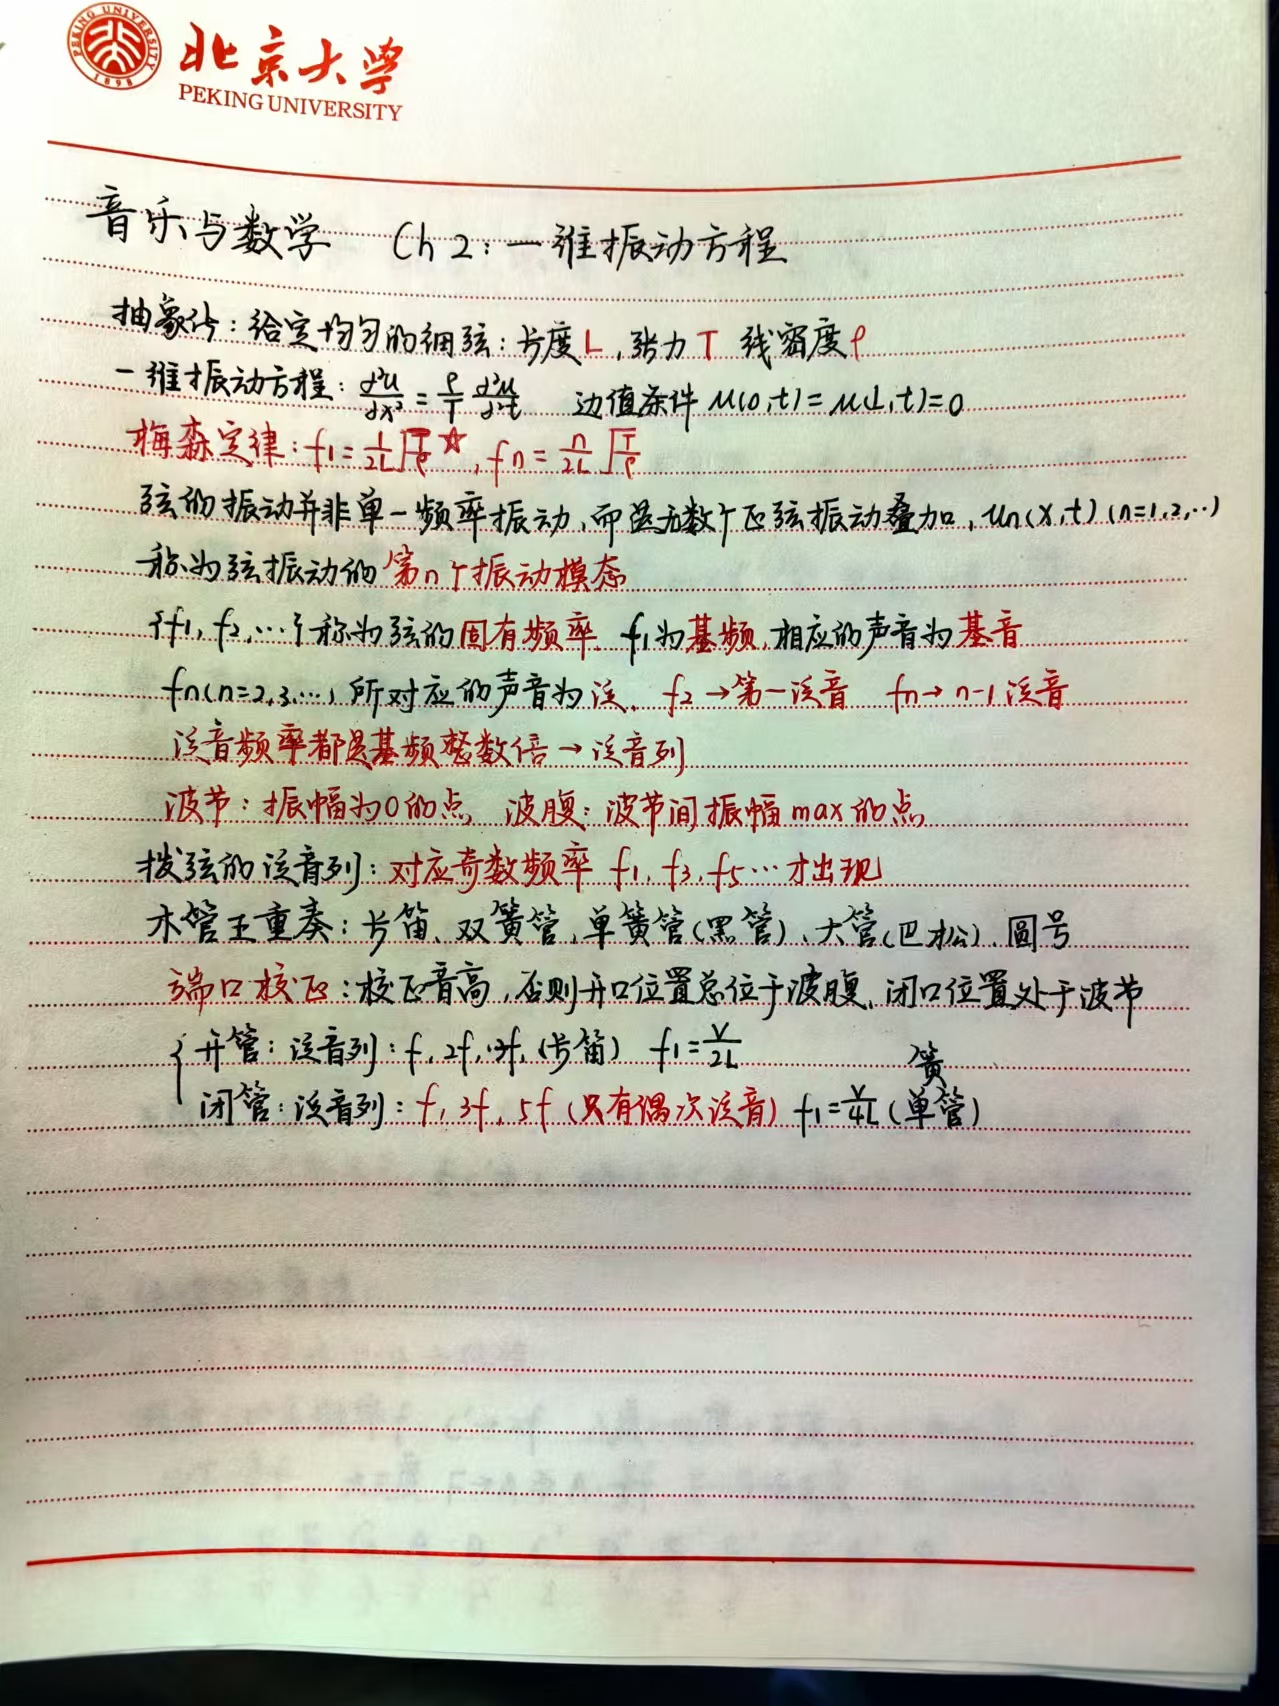 PEKING UNIVERSITY
1898
北京大学
PEKING UNIVERSITY
音乐与数学 Ch 2: 一维振动方程
抽象化: 给定均匀的细弦: 长度L, 张力T 线密度ρ
一维振动方程: d²u/dx² = ρ/T d²u/d²t 边值条件 u(0,t) = u(L,t)=0
梅森定律: f1 = 1/2L √T/ρ ☆, fn = n/2L √T/ρ
弦的振动并非单一频率振动, 而是无数个正弦振动叠加, un(x,t) (n=1,2,…)
称为弦振动的第n个振动模态
{f1, f2, …} 称为弦的固有频率. f1为基频, 相应的声音为基音
fn(n=2,3,…) 所对应的声音为泛. f2→第一泛音 fn→n-1泛音
泛音频率都是基频整数倍→泛音列
波节: 振幅为0的点 波腹: 波节间振幅max的点
拨弦的泛音列: 对应奇数频率 f1, f3, f5…才出现
木管五重奏: 长笛、双簧管, 单簧管(黑管)、大管(巴松)、圆号
端口校正: 校正音高, 否则开口位置总位于波腹, 闭口位置处于波节
{ 开管: 泛音列: f, 2f, 3f, (长笛) f1 = v/2L
闭管: 泛音列: f, 3f, 5f (只有偶次泛音) f1 = v/4L (单簧管)